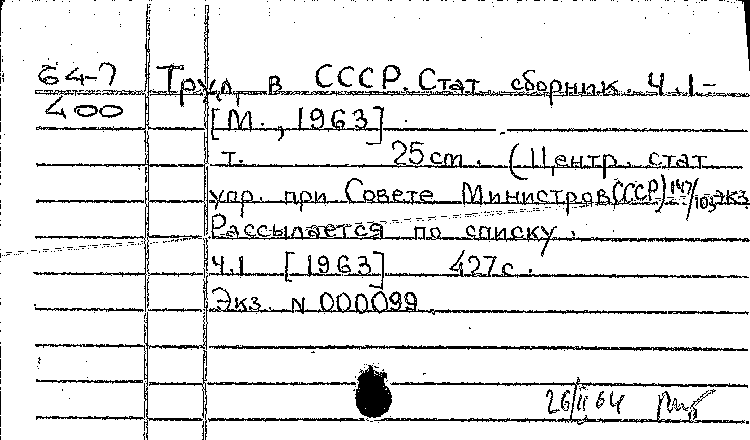 64-7
400
Труд в СССР. Стат сборник. Ч.1-
[М., 1963]
т. 25 cm. (Центр. стат
упр. при Совете Министров СССР) экз
Рассылается по списку.
Ч.1 [1963] 427 с.
Экз. N 000099
26/II 64